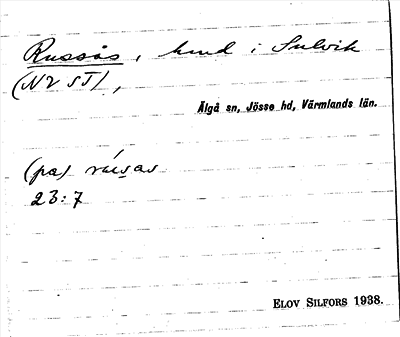 Russås, hmd i Sulvik
(NV ST),
Älgå sn, Jösse hd, Värmlands län.
(pa) rúsas
23:7
ELOV SILFORS 1938.